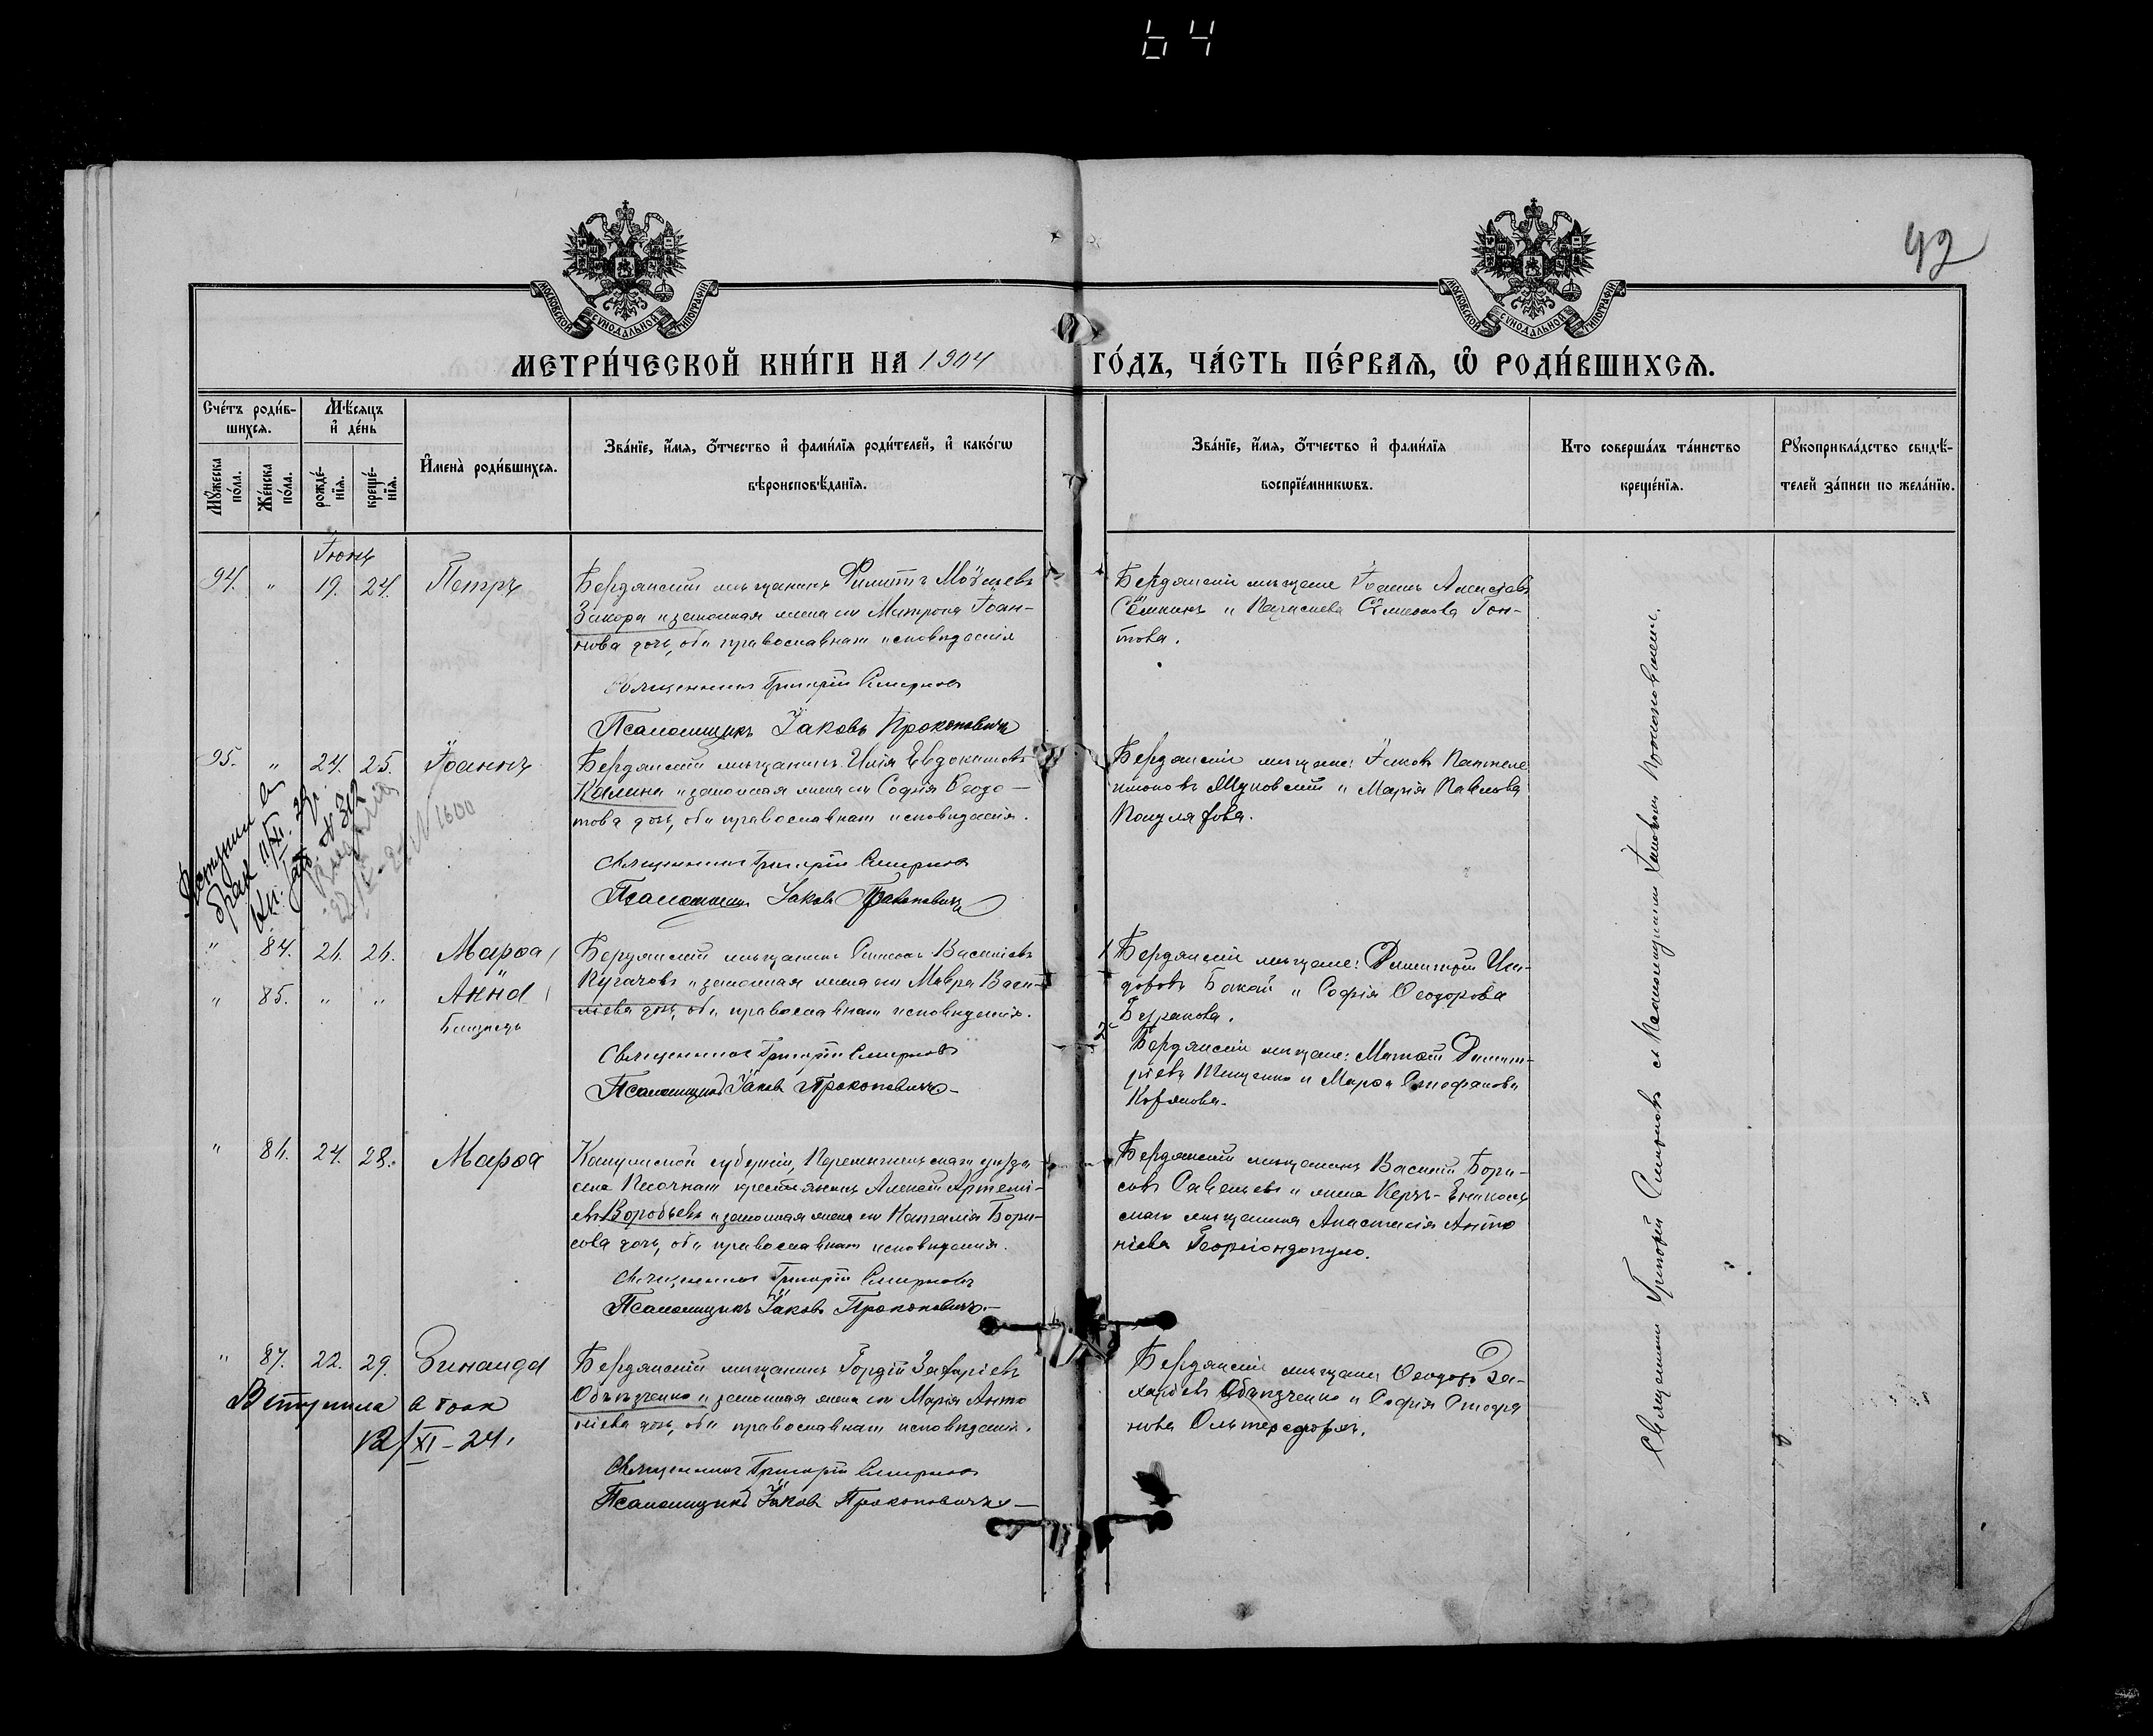 64
42
МОСКОВСКОЙ СѴНОДАЛЬНОЙ ТИПОГРАФІИ
МОСКОВСКОЙ СѴНОДАЛЬНОЙ ТИПОГРАФІИ
МЕТРИ́ЧЕСКОЙ КНИ́ГИ НА 1904 ГО́ДЪ, ЧА́СТЬ ПЕ́РВАѦ, Ѽ РОДИ́ВШИХСѦ.
Сче́тъ роди́в-
шихсѧ.
Мꙋ́жеска по́ла.
Же́нска по́ла.
Мѣ́сѧцъ
и҆ де́нь
рожде́-
нїѧ.
креще́-
нїѧ.
И҆мена̀ роди́вшихсѧ.
Зва́нїе, и҆́мѧ, ѻ҆́тчество и҆ фами́лїѧ роди́телей, и҆ како́гѡ
вѣроисповѣ́данїѧ.
Зва́нїе, и҆́мѧ, ѻ҆́тчество и҆ фами́лїѧ
воспрїе́мникѡвъ.
Кто соверша́лъ та́инство
креще́нїѧ.
Рꙋкоприкла́дство свидѣ́-
телей за́писи по жела́нїю.
Іюнь
94. " 19. 24. Петръ
Бердянскій мѣщанинъ Филиппъ Моѵсеевъ
Закора и законная жена его Матрона Іоан-
нова дочь, оба православнаго исповѣданія
Священникъ Григорій Смирновъ
Псаломщикъ Іаковъ Прокоповичъ
Бердянскіе мѣщане Іоаннъ Алексіевъ
Сёминъ и Параскева Сѵмеонова Гон-
това.
95. " 24. 25. Іоаннъ
Бердянскій мѣщанинъ Илія Евдокимовъ
Калина и законная жена его Софія Ѳеодо-
това дочь, оба православнаго исповѣданія.
Священникъ Григорій Смирновъ
Псаломщикъ Іаковъ Прокоповичъ
Бердянскіе мѣщане: Іаковъ Пантеле
имоновъ Жуковскій и Марія Павлова
Вступил в
брак 11/XI. 29г.
N 1600
" 84. 26. 26. Марѳа
" 85. " " Анна
Близнецы
Бердянскій мѣщанинъ Симеонъ Василіевъ
Пугачовъ и законная жена его Мавра Васи-
ліева дочь, оба православнаго исповѣданія.
Священникъ Григорій Смирновъ
Псаломщикъ Іаковъ Прокоповичъ
1 Бердянскіе мѣщане: Димитрій Иси-
доровъ Бакай и Софія Ѳеодорова
Бурякова.
2 Бердянскіе мѣщане: Матѳій Димит-
ріевъ Тищенко и Марѳа Стефанова
" 86. 24. 28. Марѳа
Калужской губерніи, Перемышльскаго уѣзда
села Песочнаго крестьянинъ Алексій Артемі-
евъ Воробьевъ и законная жена его Наталія Бори-
сова дочь, оба православнаго исповѣданія.
Священникъ Григорій Смирновъ
Псаломщикъ Іаковъ Прокоповичъ
Бердянскій мѣщанинъ Василій Бори-
совъ Савельевъ и жена Керчь-Еникаль
скаго мѣщанина Анастасія Анто
ніева Георгіондопуло.
" 87. 22. 29. Зинаида
Бердянскій мѣщанинъ Гордій Захаріевъ
Объѣзченко и законная жена его Марія Анто
ніева дочь, оба православнаго исповѣданія.
Священникъ Григорій Смирновъ
Псаломщикъ Іаковъ Прокоповичъ
Бердянскіе мѣщане Ѳеодоръ За-
харіевъ Объѣзченко и Софія Стефа
нова
Вступила в брак
12/XI-24.
Священникъ Григорій Смирновъ съ Псаломщикомъ Іаковомъ Прокоповичемъ.